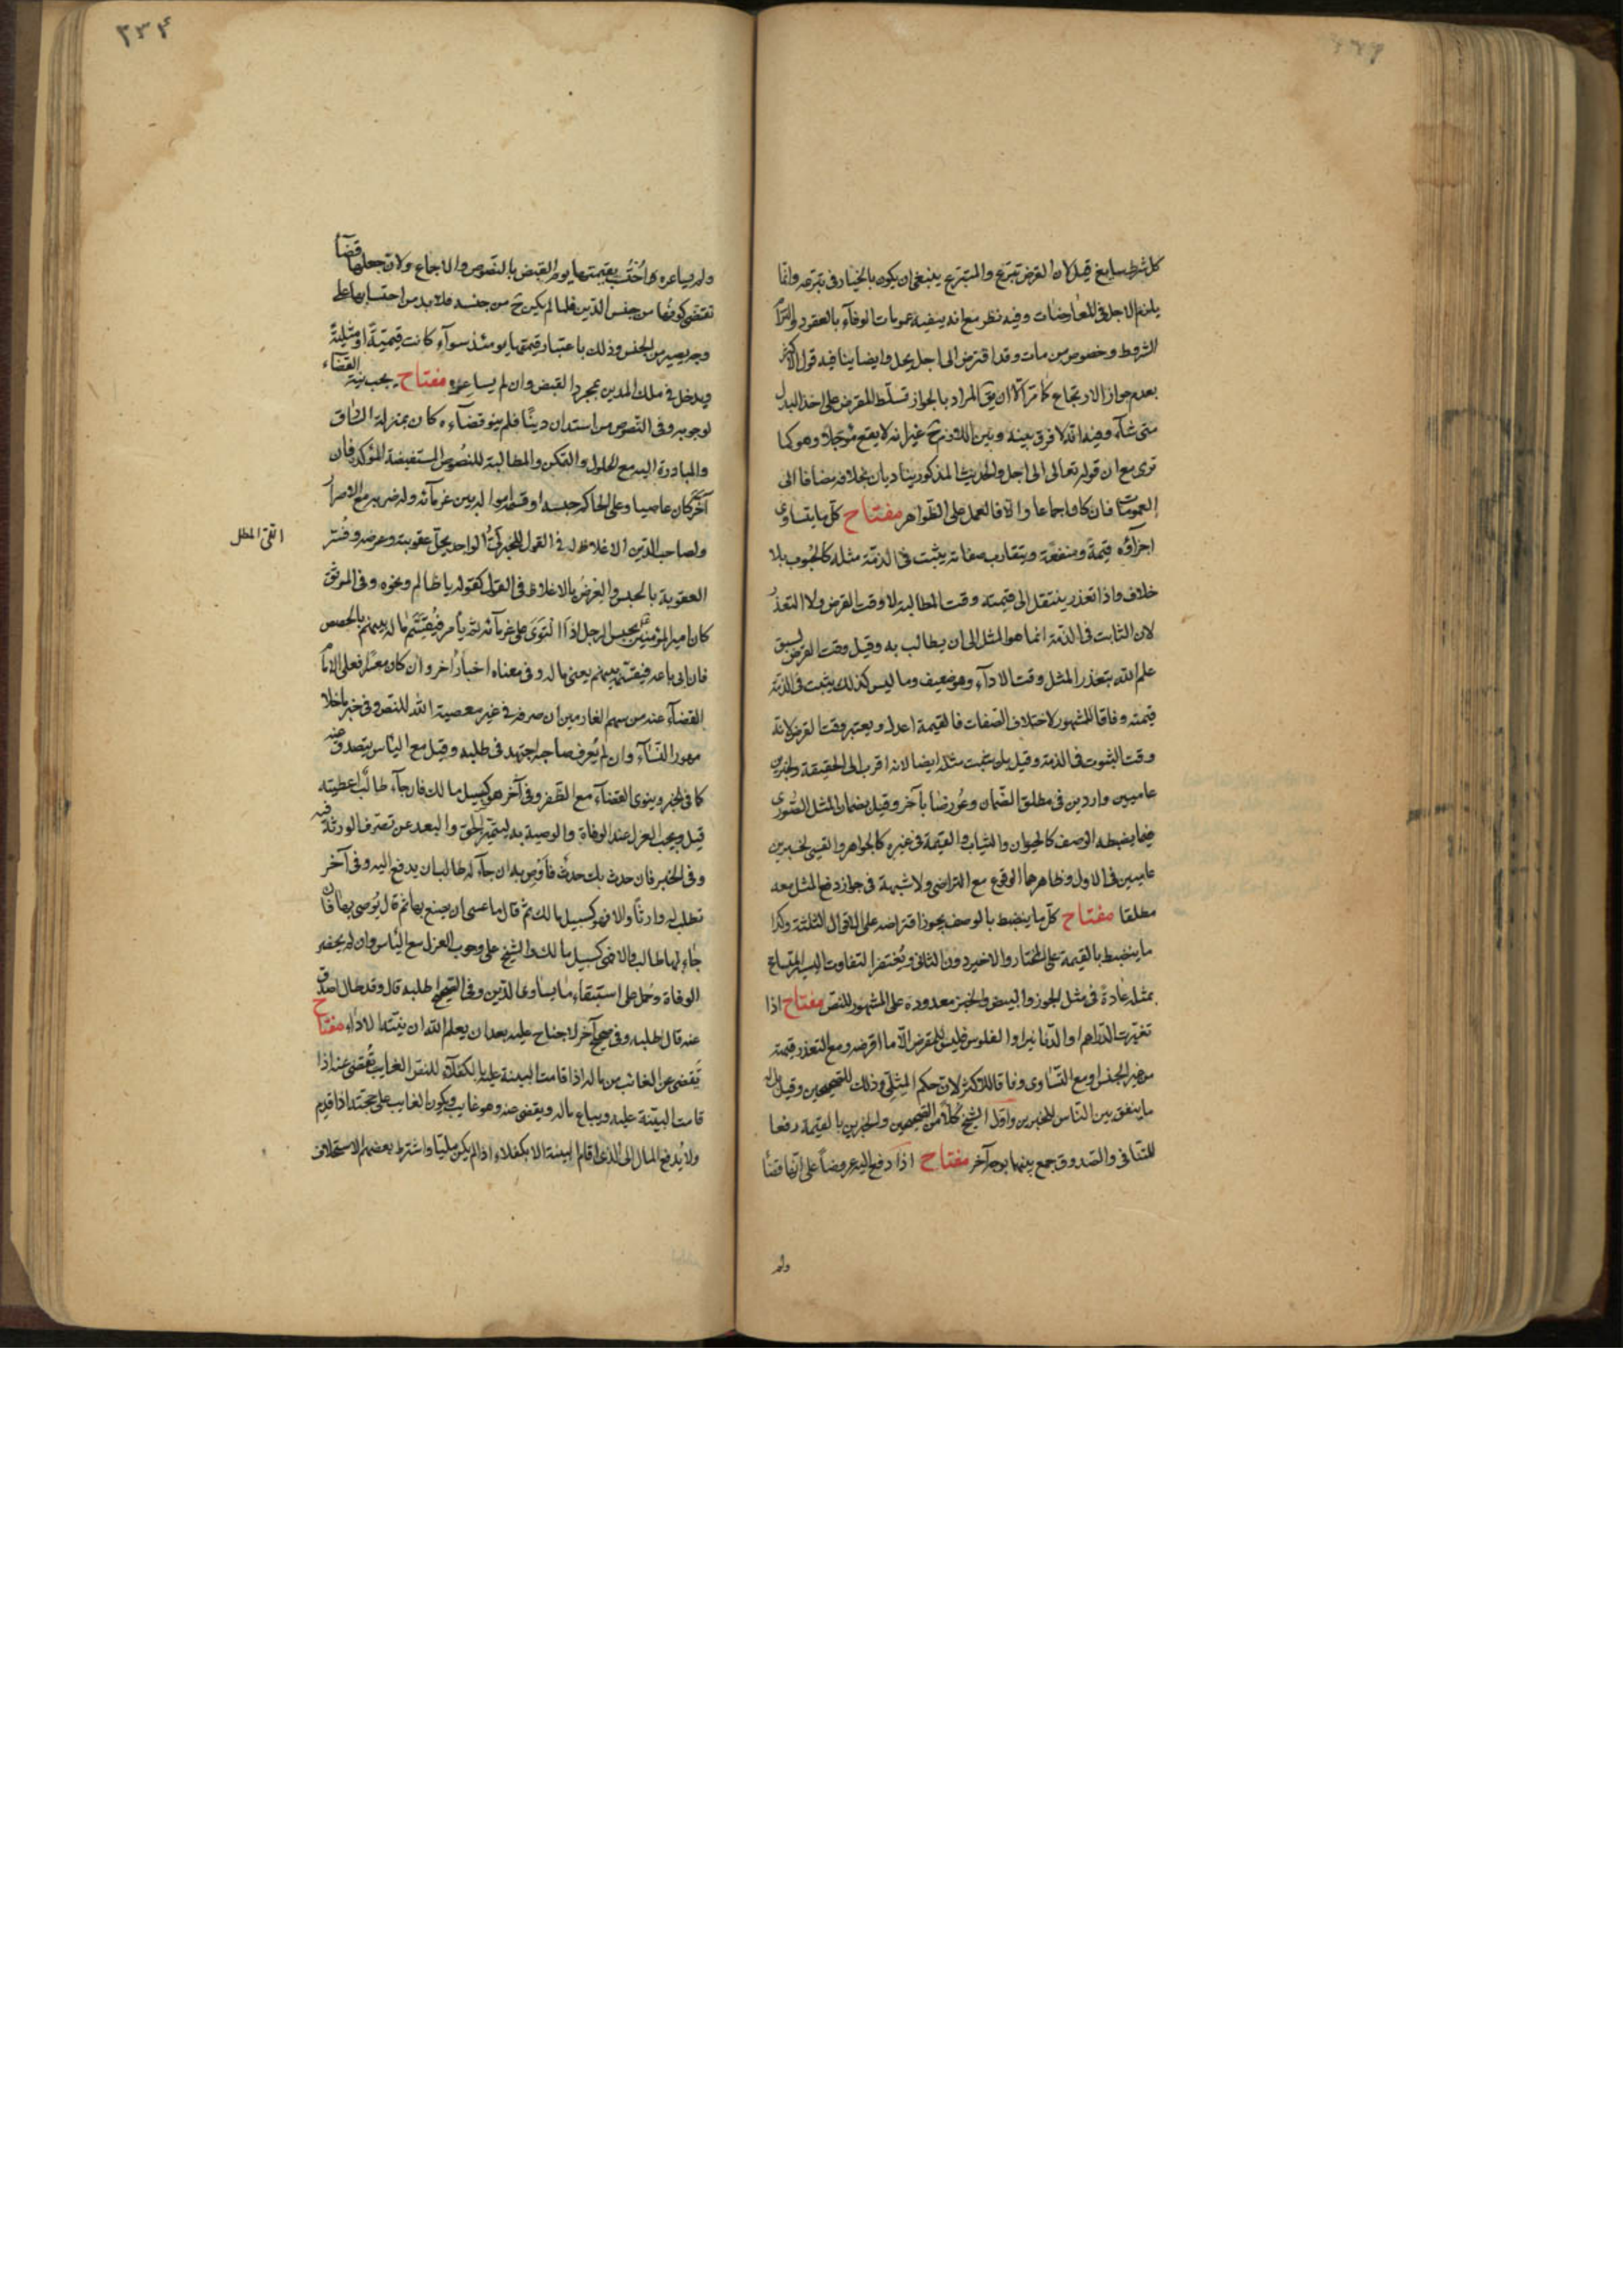 كل شرط سايغ قيل لان القرض تبرّع والمتبرّع ينبغى ان يكون بالخيار فى تبرّعه وانّما
يلزم الاجل فى المعاوضات وفيه نظر مع انه ينفيه عمومات الوفآء بالعقود والتزام
الشروط وخصوص من مات وقد اقترض الى اجل يحل وايضا ينافيه قول الاكثر
بعدم جواز الارتجاع كما مر الا ان يق المراد بالجواز تسلّط المقرض على اخذ البدل
متى شآء وفيه انه لا فرق بينه وبين اللزوم ح غير انه لا يقع مؤجلا وهو كما
ترى مع ان قوله تعالى الى اجل والحديث المذكور يناديان بخلافه مضافا الى
العمومات فان كان اجماعا والا فالعمل على الظواهر مفتاح كل ما يتساوى
اجزاؤه قيمةً ومنفعةً ويتقارب صفاته يثبت فى الذمّة مثله كالحبوب بلا
خلاف واذا تعذر ينتقل الى قيمته وقت المطالبة لا وقت القرض ولا التعذر
لان الثابت فى الذمّة انما هو المثل الى ان يطالب به وقيل وقت القرض لسبق
علم الله بتعذر المثل وقت الادآء وهو ضعيف وما ليس كذلك يثبت فى الذمّة
قيمته وفاقا للمشهور لاختلاف الصّفات فالقيمة اعدل ويعتبر وقت القرض لانه
وقت الثبوت فى الذمة وقيل بل يثبت مثله ايضا لانه اقرب الى الحقيقة ولخبرين
عاميين واردين فى مطلق الضّمان وعُورضا بآخر وقيل بضمان المثل الصّورى
فيما يضبطه الوصف كالحيوان والثياب والقيمة فى غيره كالجواهر والقسى لخبرين
عاميين فى الاول وظاهرهما الوقوع مع التراضى ولا شبهة فى جواز دفع المثل معه
مطلقا مفتاح كلّ ما ينضبط بالوصف يجوز اقتراضه على الاقوال الثلثة وكذا
ما ينضبط بالقيمة على المختار والاخير دون الثانى ويُغتفر التفاوت اليسير المتسامح
بمثله عادةً فى مثل الجوز والبيض والخبز معدودة على المشهور للنص مفتاح اذا
تغيّرت الدّراهم او الدّنانير او الفلوس فليس للمقرض الّا ما اقرضه ومع التعذر قيمته
من غير الجنس او مع التّساوى وفاقا للاكثر لان حكم المثلى وذلك للصّحيحين وقيل بل له
ما ينفق بين النّاس للخبرين واوّل الشيخ كلا من الصّحيحين والخبرين بالقيمة دفعا
للتنافى والصّدوق جمع بينهما بوجه آخر مفتاح اذا دفع اليه عروضاً على انّها قضآء
ولم
٢٣٤
ولم يساعره احتسب بقيمتها يوم القبض بالنّصوص والاجماع ولان جعلها قضآء
تقتضى كونها من جنس الدّين فلما لم يكن ح من جنسه فلا بد من احتسابها على
وجه يصير من الجنس وذلك باعتبار قيمتها يومئذ سوآء كانت قيميّةً او مثليّةً
ويدخل فى ملك المدين بمجرد القبض وان لم يساعره مفتاح يجب نيّة القضآء
لوجوبه وفى النّصوص من استدان دينًا فلم ينو قضآءه كان بمنزلة السّارق
والمبادرة اليه مع الحلول والتمكن والمطالبة للنصُوص المستفيضة المؤكدة فان
آخّر كان عاصيا وعلى الحاكم حبسه او قسمة امواله بين غرمآئه وله ضربه مع الاصرار
ولصاحب الدّين الاغلاظ له فى القول للخبر لىُّ الواجد يحلّ عقوبته وعرضه وفُسّر
اللىّ المطل
العقوبة بالحبس والعِرضُ بالاغلاظ فى القول كقوله يا ظالم ونحوه وفى الموثق
كان امير المؤمنين يحبس الرجل اذا الْتَوَى على غرمآئه ثم يأمر فيُقَسَّم ماله بينهم بالحصص
فان ابى باعه فيقسّم بينهم يعنى ماله وفى معناه اخبارٌ اُخر وان كان معسرا فعلى الامام
القضآء عنه من سهم الغارمين ان صرفه فى غير معصية الله للنص وفى خبر ما خلا
مهور النّسآء وان لم يُعرف صاحبه اجتهد فى طلبه وقيل مع اليأس يتصدق عنه
كما فى الخبر وينوى القضآء مع الظفر وفى آخر هو كسبيل مالك فان جآء طالبٌ اعطيته
قيل ويجب العزل عند الوفاة والوصية به ليتميّز الحق والبعد عن تصرف الورثة فيه
وفى الخبر فان حدث بك حدثٌ فأَوْصِ به ان جآء له طالب ان يدفع اليه وفى آخر
تطلب له وارثاً والا فهو كسبيل مالك ثمّ قال ما عسى ان يصنع بها ثم قال يُوصى بها فان
جاء لها طالب والا فهى كسبيل مالك والشيخ على وجوب العزل مع اليأس وان لم يحضره
الوفاة وحُمل على استبقاء ما يساوى الدّين وفى الصّحيح اطلبه قال وقد طال اصدق
عنه قال اطلبه وفى صحيح آخر لا جناح عليه بعد ان يعلم الله ان نيته الادآء مفتاح
يَقضى عن الغائب من ماله اذا قامت البيّنة عليه بالكفلآء للنص الغايب يُقضى عنه اذا
قامت البيّنة عليه ويباع ماله ويقضى عنه وهو غايب ويكون الغايب على حجته اذا قدم
ولا يُدفع المال الى الذى اقام البيّنة الا بكفلاء اذا لم يكن مليّا واشترط بعضهم الاستحلاف